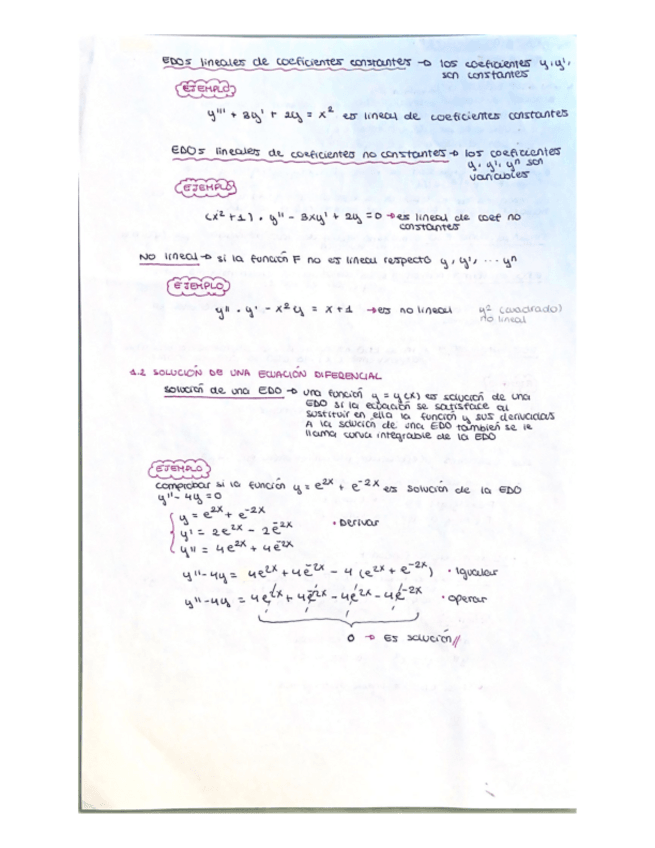 EDOs lineales de coeficientes constantes → los coeficientes y, y',
son constantes
EJEMPLO
y''' + 3y' + 2y = x² es lineal de coeficientes constantes
EDOs lineales de coeficientes no constantes → los coeficientes
y, y', yⁿ son
variables
EJEMPLO
(x²+1) · y'' - 3xy' + 2y = 0 → es lineal de coef no
constantes
NO lineal → si la función F no es lineal respecto y, y', ... yⁿ
EJEMPLO
y'' · y' - x²y = x + 1 → es no lineal y² (cuadrado)
no lineal
1.2 SOLUCIÓN DE UNA ECUACIÓN DIFERENCIAL
solución de una EDO → una función y = y(x) es solución de una
EDO si la ecuación se satisface al
sustituir en ella la función y sus derivadas
A la solución de una EDO también se le
llama curva integrable de la EDO
EJEMPLO
comprobar si la función y = e²ˣ + e⁻²ˣ es solución de la EDO
y'' - 4y = 0
y = e²ˣ + e⁻²ˣ
y' = 2e²ˣ - 2e⁻²ˣ · Derivar
y'' = 4e²ˣ + 4e⁻²ˣ
y'' - 4y = 4e²ˣ + 4e⁻²ˣ - 4 (e²ˣ + e⁻²ˣ) · Igualar
y'' - 4y = 4e²ˣ + 4e⁻²ˣ - 4e²ˣ - 4e⁻²ˣ · operar
0 → Es solución//